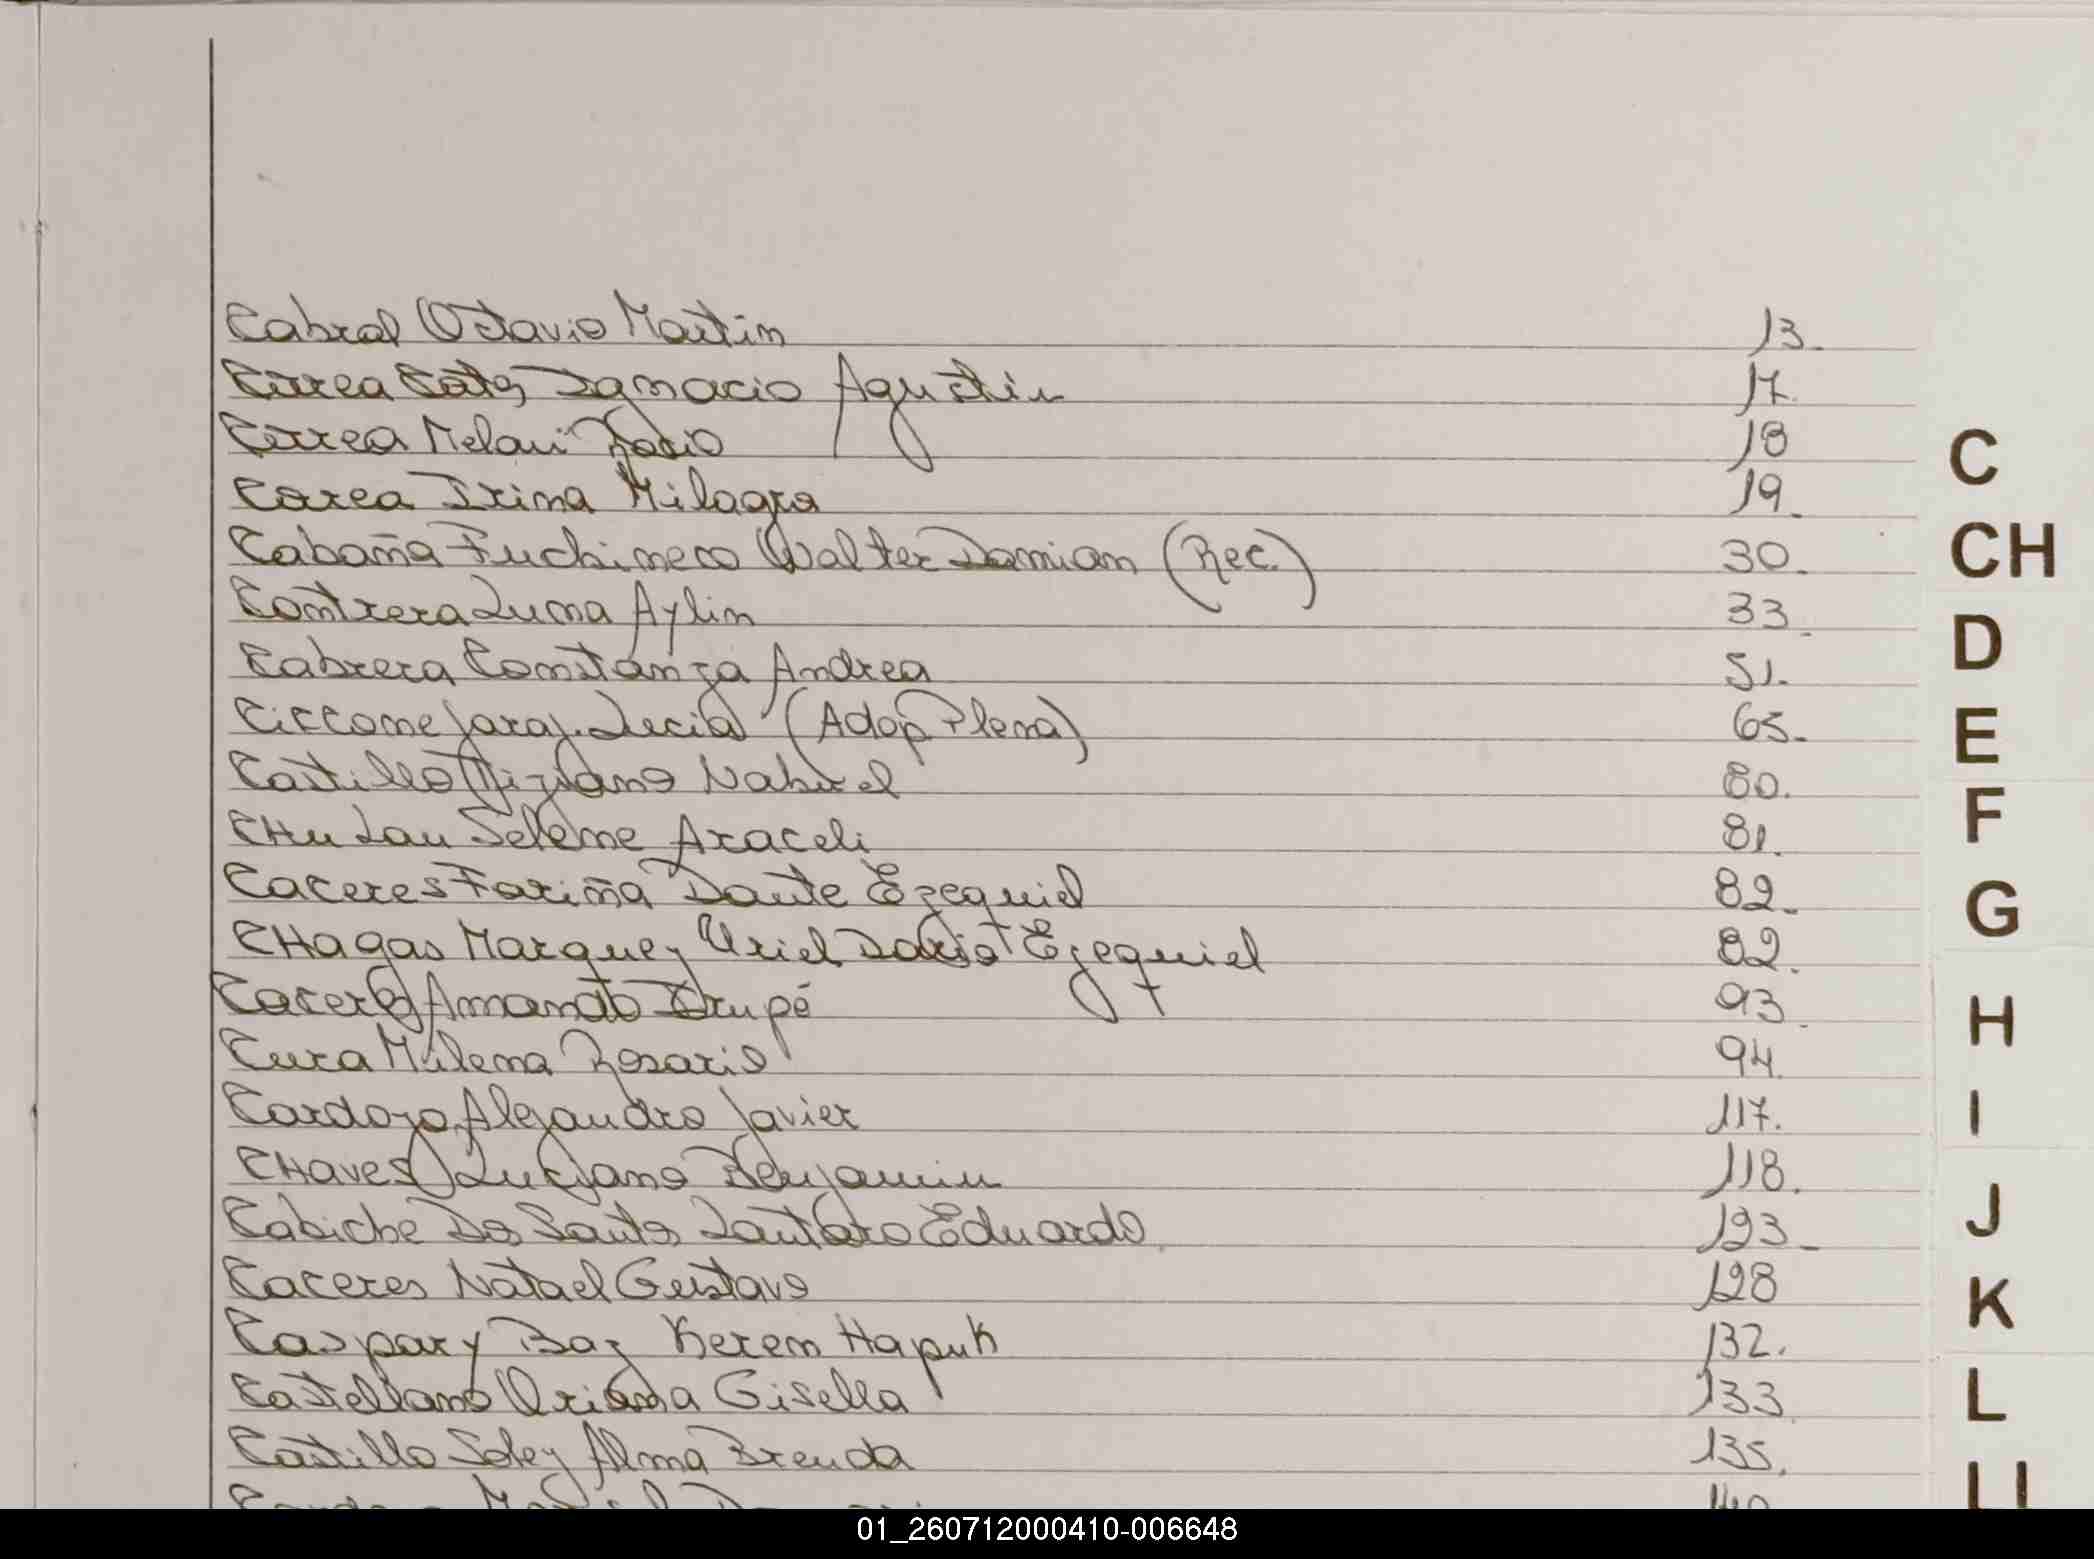 Cabral Octavio Martin 13.
Correa Cotz Ignacio Agustin 17.
Correa Melani Rocio 18
Correa Irina Milagro 19.
Cabaña Fuchineco Walter Damian (Rec.) 30.
Contrera Luma Aylin 33.
Cabrera Constanza Andrea 51.
Ciccone Jara J. Lucia (Adop Plena) 65.
Castillo Tiziano Nabirel 80.
CHu Lau Selene Araceli 81.
Caceres Fariña Dante Ezequiel 82.
CHagas Marquez Uriel Dario Ezequiel 82.
Caceres Amanda Irupé 93.
Cura Milena Rosario 94.
Cardozo Alejandro Javier 117.
CHaves Luciano Benjamin 118.
Cabiche Dos Santos Lautaro Eduardo 123.
Caceres Natael Gustavo 128
Caspary Baz Kerem Hapuk 132.
Castellano Oriana Gisella 133
Castillo Soley Alma Brenda 135.
C
CH
D
E
F
G
H
I
J
K
L
01_260712000410-006648